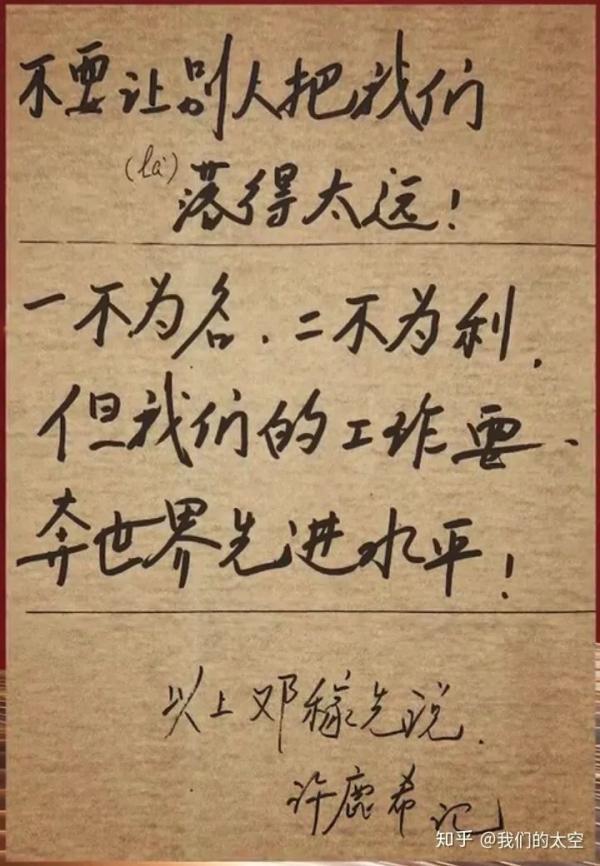 不要让别人把我们
(là)
落得太远!
一不为名、二不为利,
但我们的工作要、
奔世界先进水平!
以上邓稼先说.
许鹿希记
知乎 @我们的太空